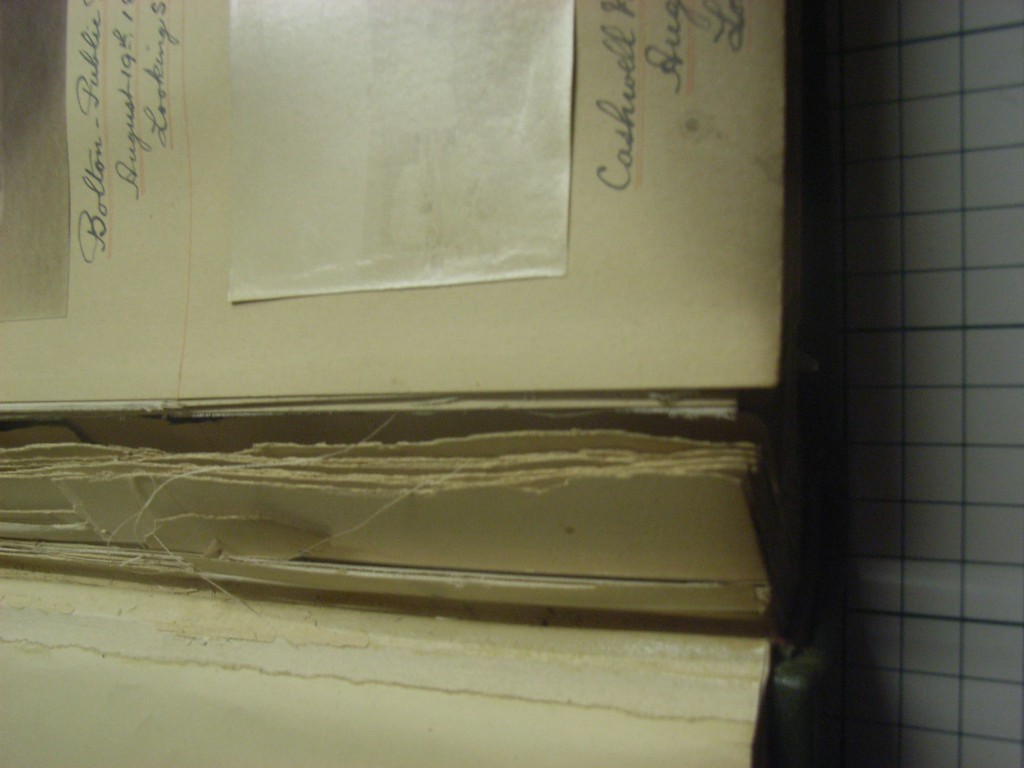 Bolton - Public
August 19th, 1
Looking S
Cashwell
Aug
Lo